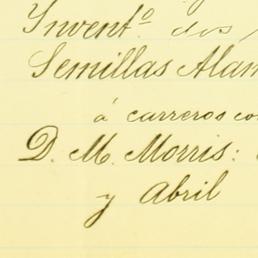 Ynventº dos
Semillas Alam
á carreros co
D. M. Morris:
y Abril